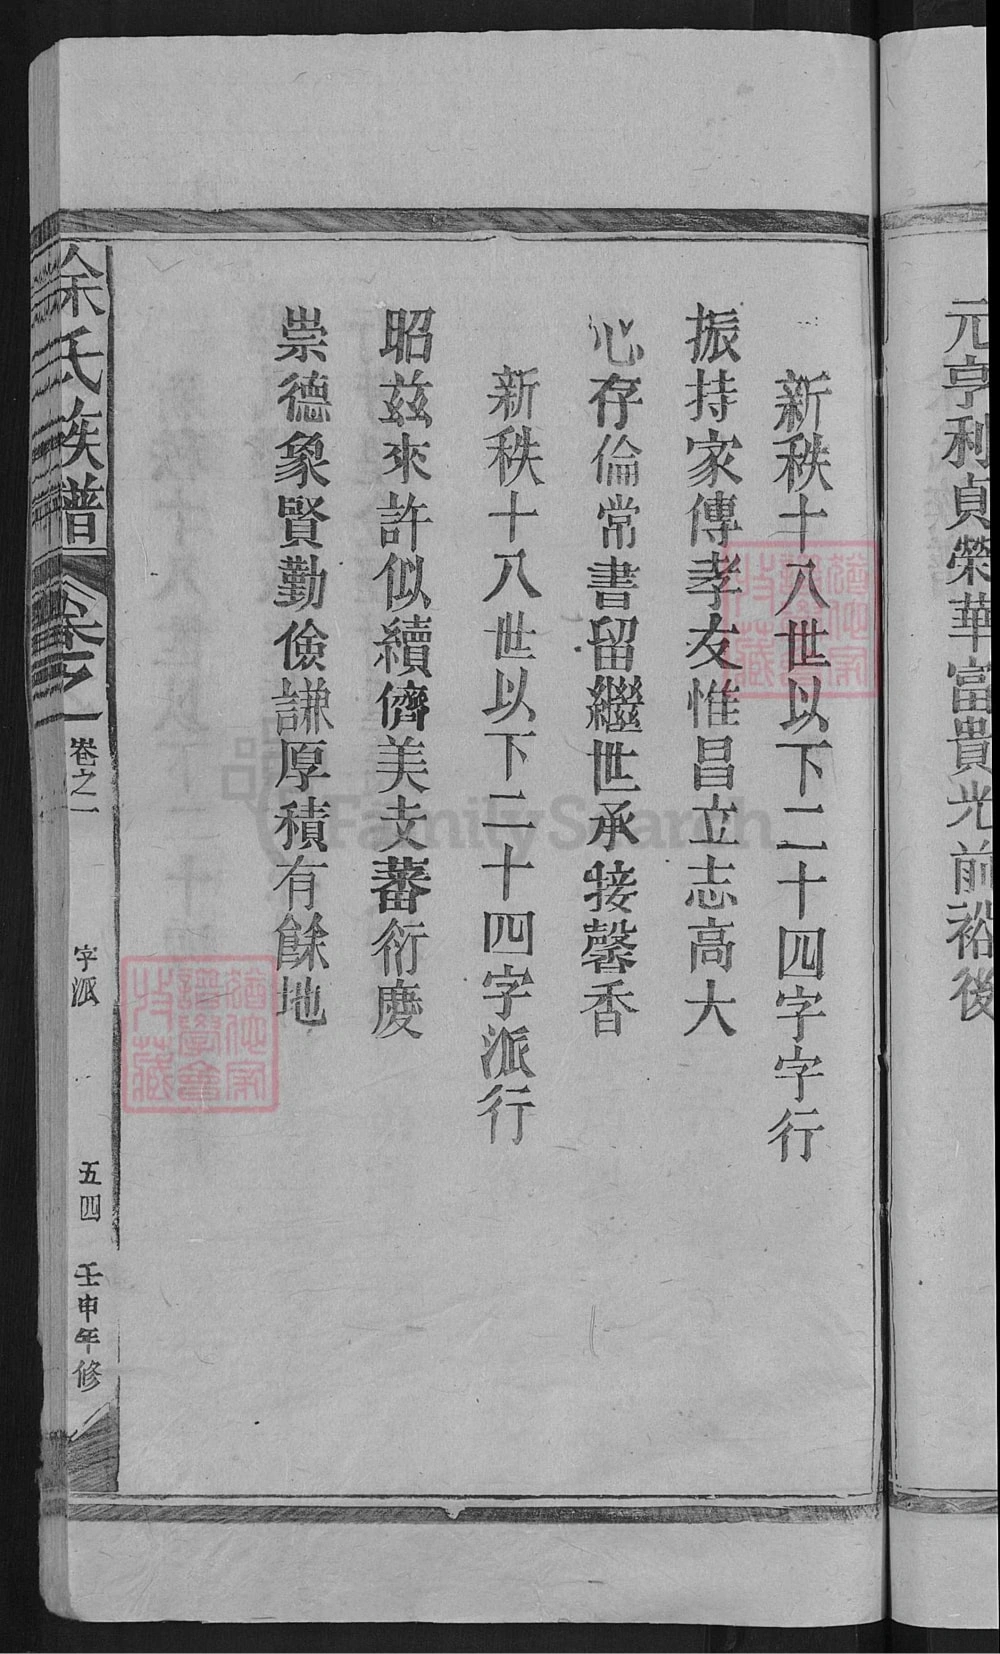 元亨利貞榮華富貴光前裕後
新秩十八世以下二十四字字行
振持家傳孝友惟昌立志高大
心存倫常書留繼世承接馨香
新秩十八世以下二十四字派行
昭茲來許似續儕美支蕃衍慶
崇德象賢勤儉謙厚積有餘地
余氏族譜
卷之一
卷之一
字派
五四
壬申年修
FamilySearch